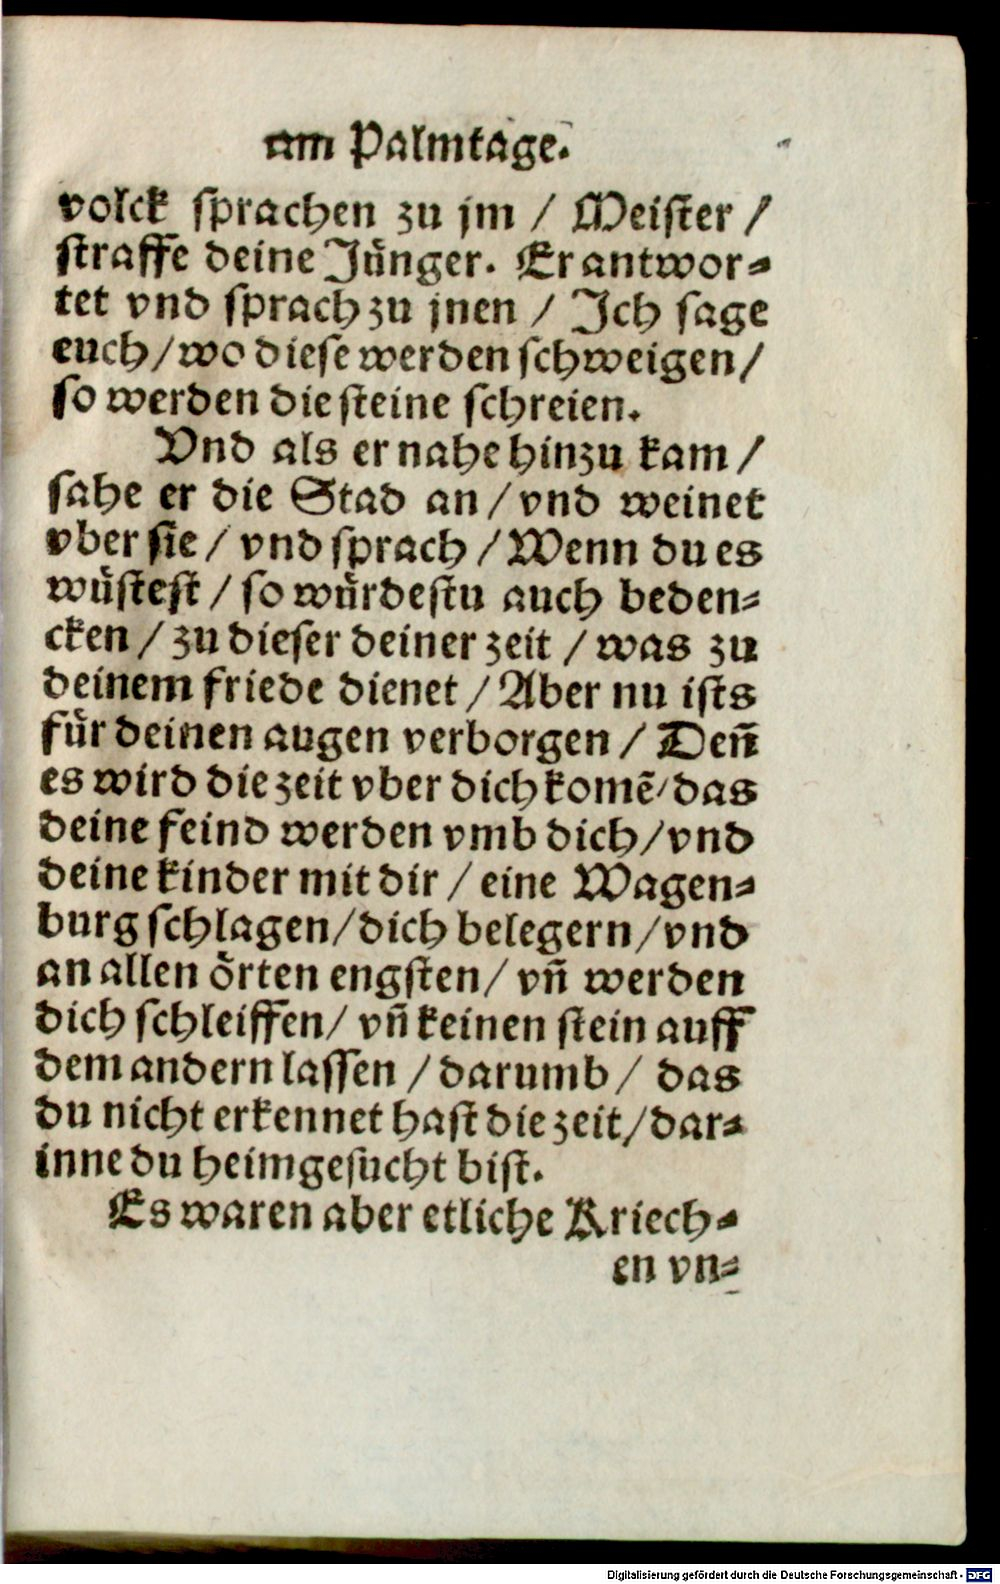 am Palmtage.
volck sprachen zu jm / Meister /
straffe deine Jünger. Er antwor⸗
tet vnd sprach zu jnen / Ich sage
euch / wo diese werden schweigen /
so werden die steine schreien.
Vnd als er nahe hinzu kam /
sahe er die Stad an / vnd weinet
vber sie / vnd sprach / Wenn du es
wüstest / so würdestu auch beden⸗
cken / zu dieser deiner zeit / was zu
deinem friede dienet / Aber nu ists
für deinen augen verborgen / Deñ
es wird die zeit vber dich komẽ / das
deine feind werden vmb dich / vnd
deine kinder mit dir / eine Wagen⸗
burg schlagen / dich belegern / vnd
an allen örten engsten / vñ werden
dich schleiffen / vñ keinen stein auff
dem andern lassen / darumb / das
du nicht erkennet hast die zeit / dar⸗
inne du heimgesucht bist.
Es waren aber etliche Kriech⸗
en vn⸗
Digitalisierung gefördert durch die Deutsche Forschungsgemeinschaft - DFG